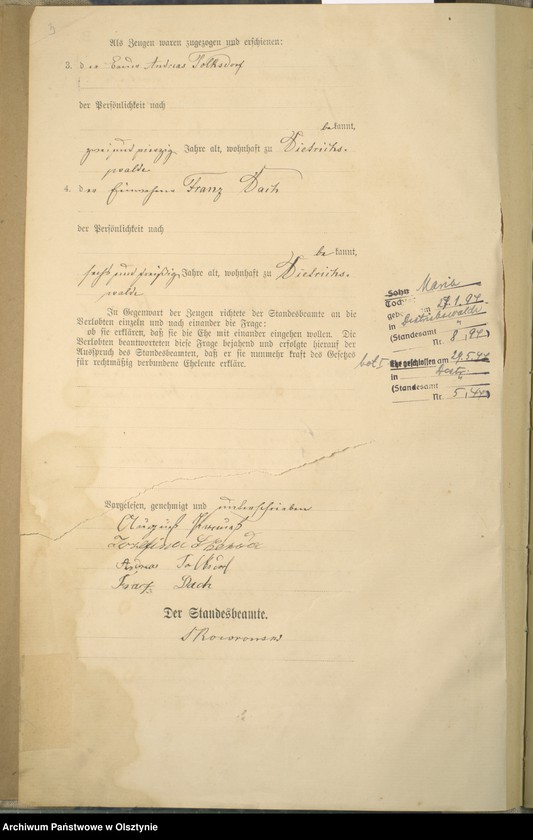 3
Als Zeugen waren zugezogen und erschienen:
3. der Andreas Tolksdorf
der Persönlichkeit nach
bekannt,
zwei und vierzig Jahre alt, wohnhaft zu Dietrichs-
walde
4. der Franz Dach
der Persönlichkeit nach
bekannt,
sechs und dreißig Jahre alt, wohnhaft zu Dietrichs-
walde
In Gegenwart der Zeugen richtete der Standesbeamte an die
Verlobten einzeln und nach einander die Frage:
ob sie erklären, daß sie die Ehe mit einander eingehen wollen. Die
Verlobten beantworteten diese Frage bejahend und erfolgte hierauf der
Ausspruch des Standesbeamten, daß er sie nunmehr kraft des Gesetzes
für rechtmäßig verbundene Eheleute erkläre.
Sohn Maria
Tochter
geb. am
in Dietrichswalde
(Standesamt "
Nr. 8
Ehe geschlossen am
in
(Standesamt "
Nr. 5
Vorgelesen, genehmigt und unterschrieben
August
Andreas Tolksdorf
Franz Dach
Der Standesbeamte.
Skowronski
Archiwum Państwowe w Olsztynie